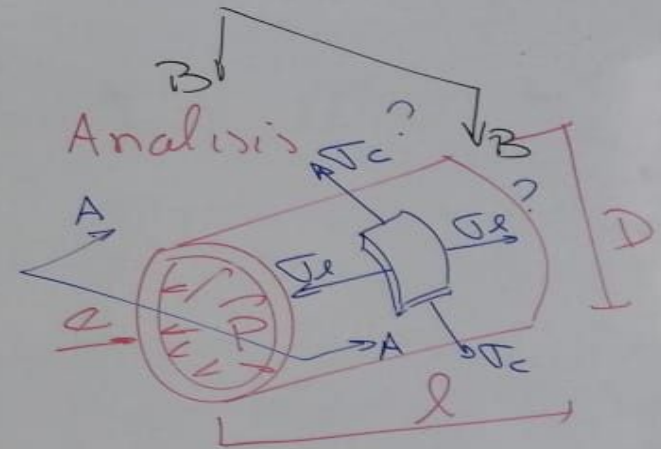 B
B
Analisis
σc ?
A
?
σl
σl
D
e
P
A
σc
l